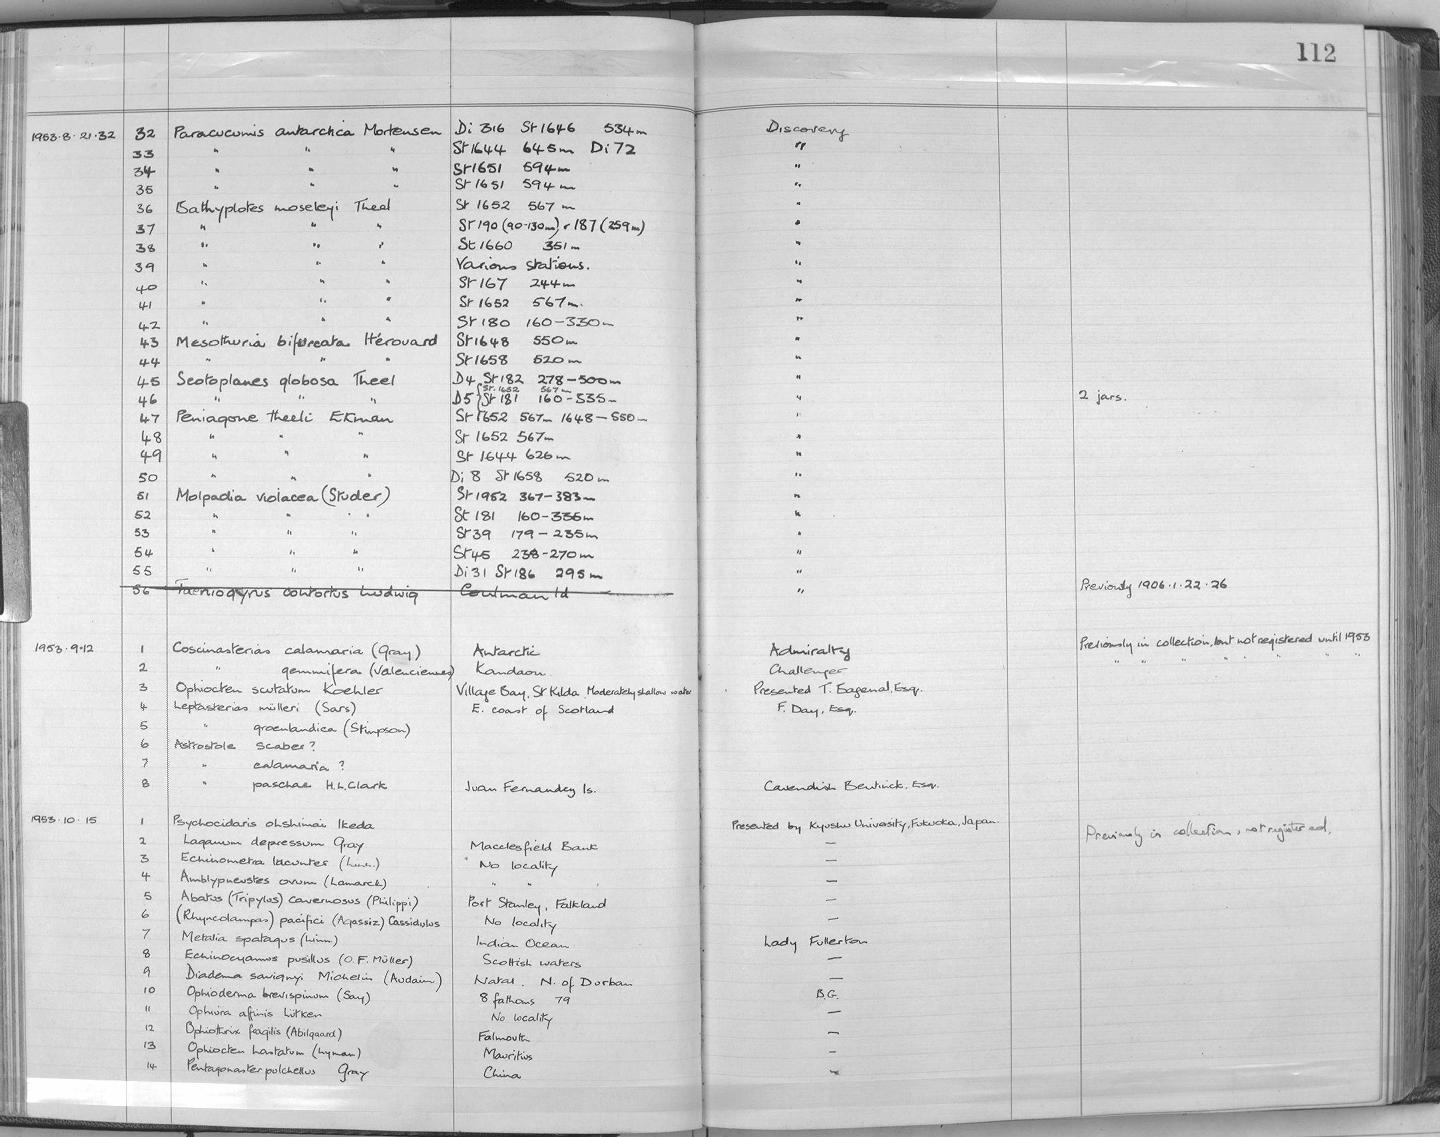 112
1953·8·21·32 32 Paracucumis antarctica Mortensen Di 316 St 1646 534m Discovery
33 " " " St 1644 645m Di 72 "
34 " " " St 1651 594m "
35 " " " St 1651 594m "
36 Bathyplotes moseleyi Theel St 1652 567m "
37 " " " St 190 (90-130m) + 187 (259m) "
38 " " " St 1660 351m "
39 " " " Various stations. "
40 " " " St 167 244m "
41 " " " St 1652 567m. "
42 " " " St 180 160-330m "
43 Mesothuria bifurcata Hérouard St 1648 550m "
44 " " " St 1658 520m "
45 Scotoplanes globosa Theel D4 St 182 278-500m "
St. 1652 567m
46 " " " D5 St 181 160-335m " 2 jars.
47 Peniagone theeli Ekman St 1652 567m 1648-550m "
48 " " " St 1652 567m "
49 " " " St 1644 626m "
50 " " " Di 8 St 1658 520m "
51 Molpadia violacea (Studer) St 1952 367-383m "
52 " " " " St 181 160-335m "
53 " " " St 39 179-235m "
54 " " " St 45 238-270m "
55 " " " Di 31 St 186 295m "
56 Taeniogyrus contortus Ludwig Coulman Id " Previously 1906·1·22·26
1953·9·12 1 Coscinasterias calamaria (Gray) Antarctic Admiralty Previously in collection, but not registered until 1953
2 " gemmifera (Valenciennes) Kandaon. Challenger " " " " " " "
3 Ophiocten scutatum Koehler Village Bay, St Kilda. Moderately shallow water Presented T. Eagenal, Esq.
4 Leptasterias mülleri (Sars) E. coast of Scotland F. Day, Esq.
5 " groenlandica (Stimpson)
6 Astrostole scaber?
7 " calamaria?
8 " paschae H.L. Clark Juan Fernandez Is. Cavendish Bentinck, Esq.
1953·10·15 1 Psychocidaris ohshimai Ikeda Presented by Kyushu University, Fukuoka, Japan.
2 Laganum depressum Gray Macclesfield Bank — Previously in collection, not registered.
3 Echinometra lacunter (Linn.) No locality —
4 Amblypneustes ovum (Lamarck) " " —
5 Abatus (Tripylus) cavernosus (Philippi) Port Stanley, Falkland —
6 (Rhyncolampas) pacifici (Agassiz) Cassidulus No locality —
7 Metalia spatagus (Linn) Indian Ocean Lady Fullerton
8 Echinocyamus pusillus (O.F. Müller) Scottish waters —
9 Diadema savignyi Michelin (Audain) Natal. N. of Durban —
10 Ophioderma brevispinum (Say) 8 fathoms 79 B.G.
11 Ophiura affinis Lütken No locality —
12 Ophiothrix fragilis (Abilgaard) Falmouth —
13 Ophiocten hastatum (Lyman) Mauritius -
14 Pentagonaster pulchellus Gray China "